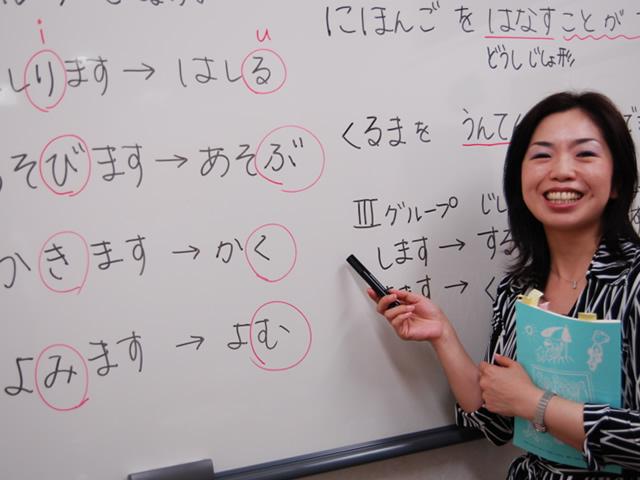 i u
しります → はしる
そびます → あそぶ
かきます → かく
よみます → よむ
にほんごを はなすことが
どうしじしょ形
くるまを うんて
III グループ じし
します → する
ます → く